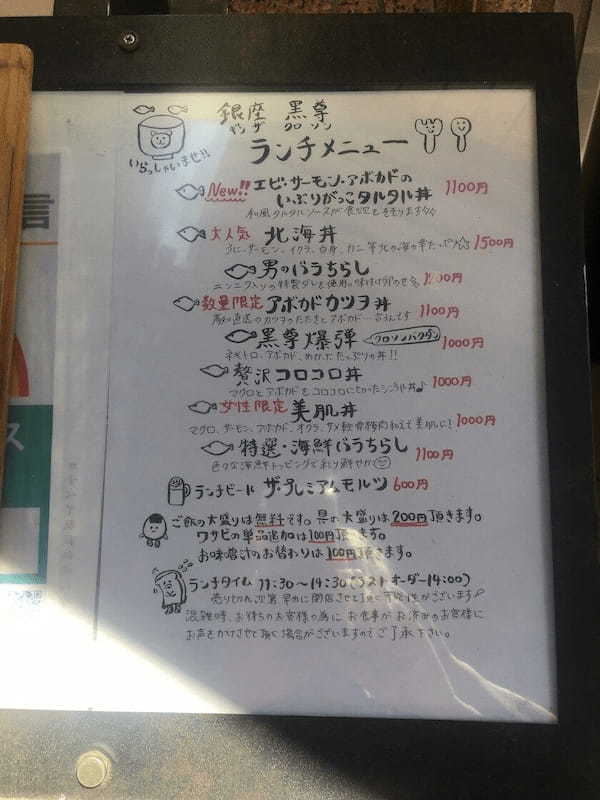 銀座 黒尊
ギンザ クロソン
ランチメニュー
いらっしゃいませ!!
New!! エビ・サーモン・アボカドの
いぶりがっこタルタル丼 1100円
和風タルタルソースが食欲をそそります
大人気 北海丼 1500円
うに、サーモン、イクラ、白身、カニ 等北の海の幸たっぷり☆
男のバラちらし
ニンニク入りの特製ダレを使用。味付け卵のせ
数量限定 アボカドカツヲ丼 1100円
高知直送のカツヲのたたきとアボカド
黒尊爆弾 クロソンバクダン 1000円
ネギトロ、アボカド、めかぶ たっぷりの丼!!
贅沢コロコロ丼 1000円
マグロとアボカドをコロコロにしたカッシュウル丼♪
女性限定 美肌丼 1000円
マグロ、サーモン、アボカド、オクラ、サメ軟骨梅肉和えで美肌に!
特選・海鮮バラちらし 1100円
色々な海鮮トッピングで彩り鮮やか
ランチビール ザ・プレミアムモルツ 600円
ご飯の大盛りは無料です。具の大盛りは200円頂きます。
ワサビの単品追加は100円頂きます。
お味噌汁のお替わりは100円頂きます。
ランチタイム 11:30〜14:30(ラストオーダー14:00)
売り切れ次第早めに閉店させて頂く可能性がございます
混雑時、お待ちのお客様の為に お食事がお済みのお客様に
お声をかけさせて頂く場合がございますのでご了承下さい。
言
ス